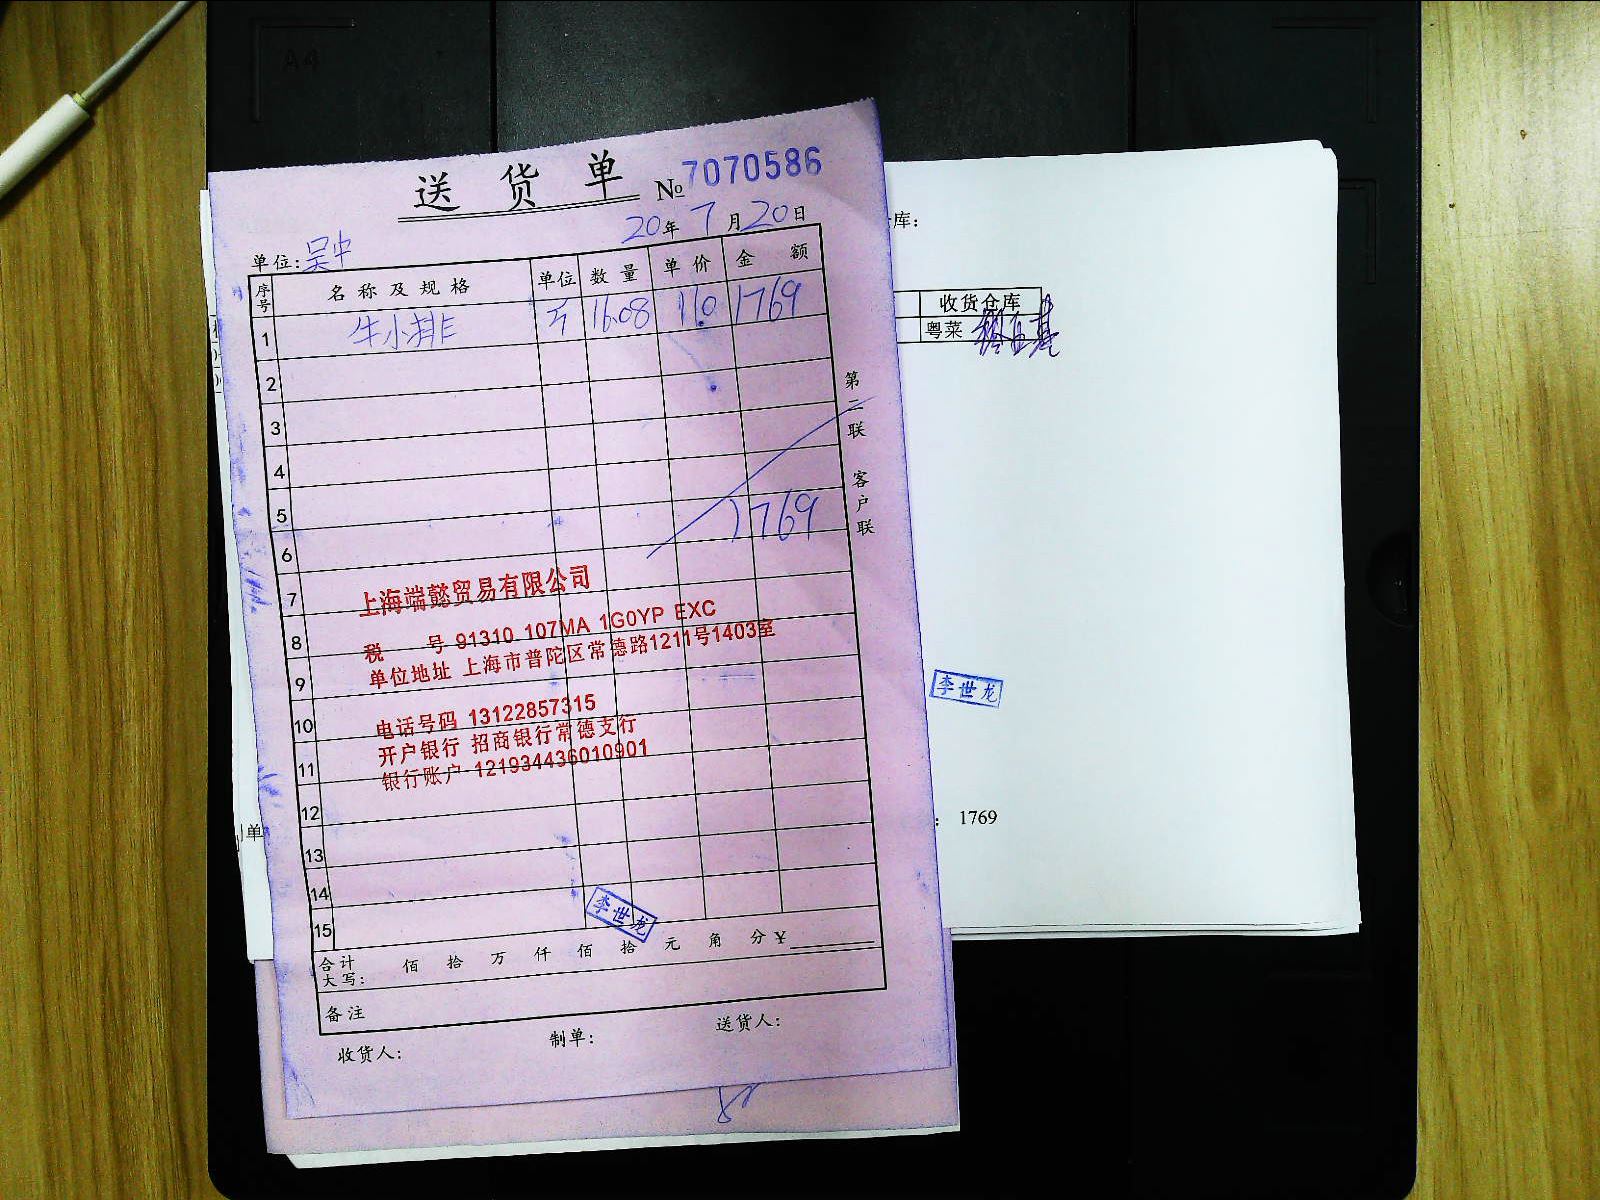 A4
送货单 № 7070586
20年7月20日
单位：吴中
序号 名称及规格 单位 数量 单价 金额
1 牛小排 斤 16.08 110 1769
2
3
4
5 1769
6
7
8
9
10
11
12
13
14
15
上海端懿贸易有限公司
税 号 91310 107MA 1G0YP EXC
单位地址 上海市普陀区常德路1211号1403室
电话号码 13122857315
开户银行 招商银行常德支行
银行账户 121934436010901
李世龙
合计大写： 佰 拾 万 仟 佰 拾 元 角 分 ¥
备注
收货人： 制单： 送货人：
第二联 客户联
库：
收货仓库
粤菜
李世龙
单
： 1769